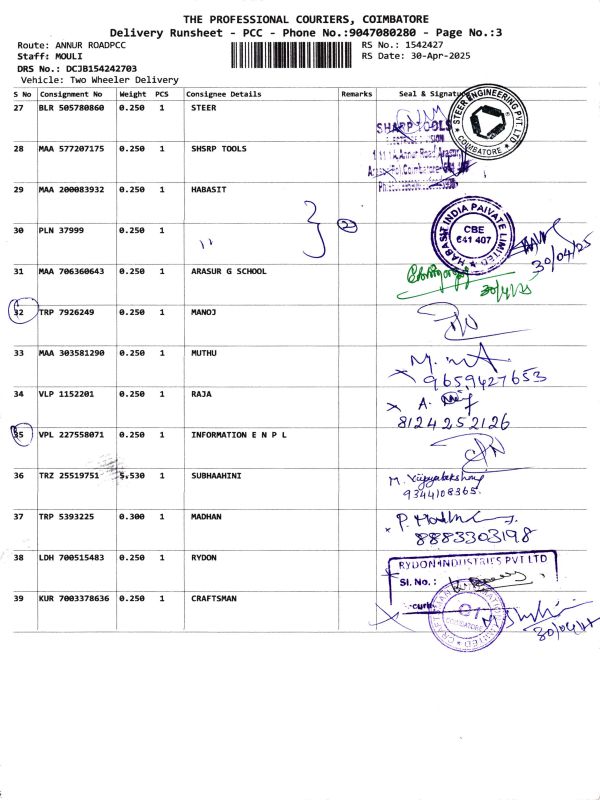 THE PROFESSIONAL COURIERS, COIMBATORE
Delivery Runsheet - PCC - Phone No.:9047080280 - Page No.:3
Route: ANNUR ROADPCC
RS No.: 1542427
Staff: MOULI
RS Date: 30-Apr-2025
DRS No.: DCJB154242703
Vehicle: Two Wheeler Delivery
S No Consignment No Weight PCS Consignee Details Remarks Seal & Signature
27 BLR 505780860 0.250 1 STEER
STEER ENGINEERING PVT LTD
COIMBATORE
28 MAA 577207175 0.250 1 SHSRP TOOLS
SHARP TOOLS
29 MAA 200083932 0.250 1 HABASIT
2
HABASIT INDIA PAIVATE LIMITED
CBE
641 407
30/04/25
30 PLN 37999 0.250 1
"
31 MAA 706360643 0.250 1 ARASUR G SCHOOL
30/4/25
32 TRP 7926249 0.250 1 MANOJ
33 MAA 303581290 0.250 1 MUTHU
9659427653
34 VLP 1152201 0.250 1 RAJA
A.
8124252126
35 VPL 227558071 0.250 1 INFORMATION E N P L
36 TRZ 25519751 5.530 1 SUBHAAHINI
M.
9344108365.
37 TRP 5393225 0.300 1 MADHAN
P.
8883303198
38 LDH 700515483 0.250 1 RYDON
RYDON INDUSTRIES PVT LTD
Sl. No.:
39 KUR 7003378636 0.250 1 CRAFTSMAN
COIMBATORE